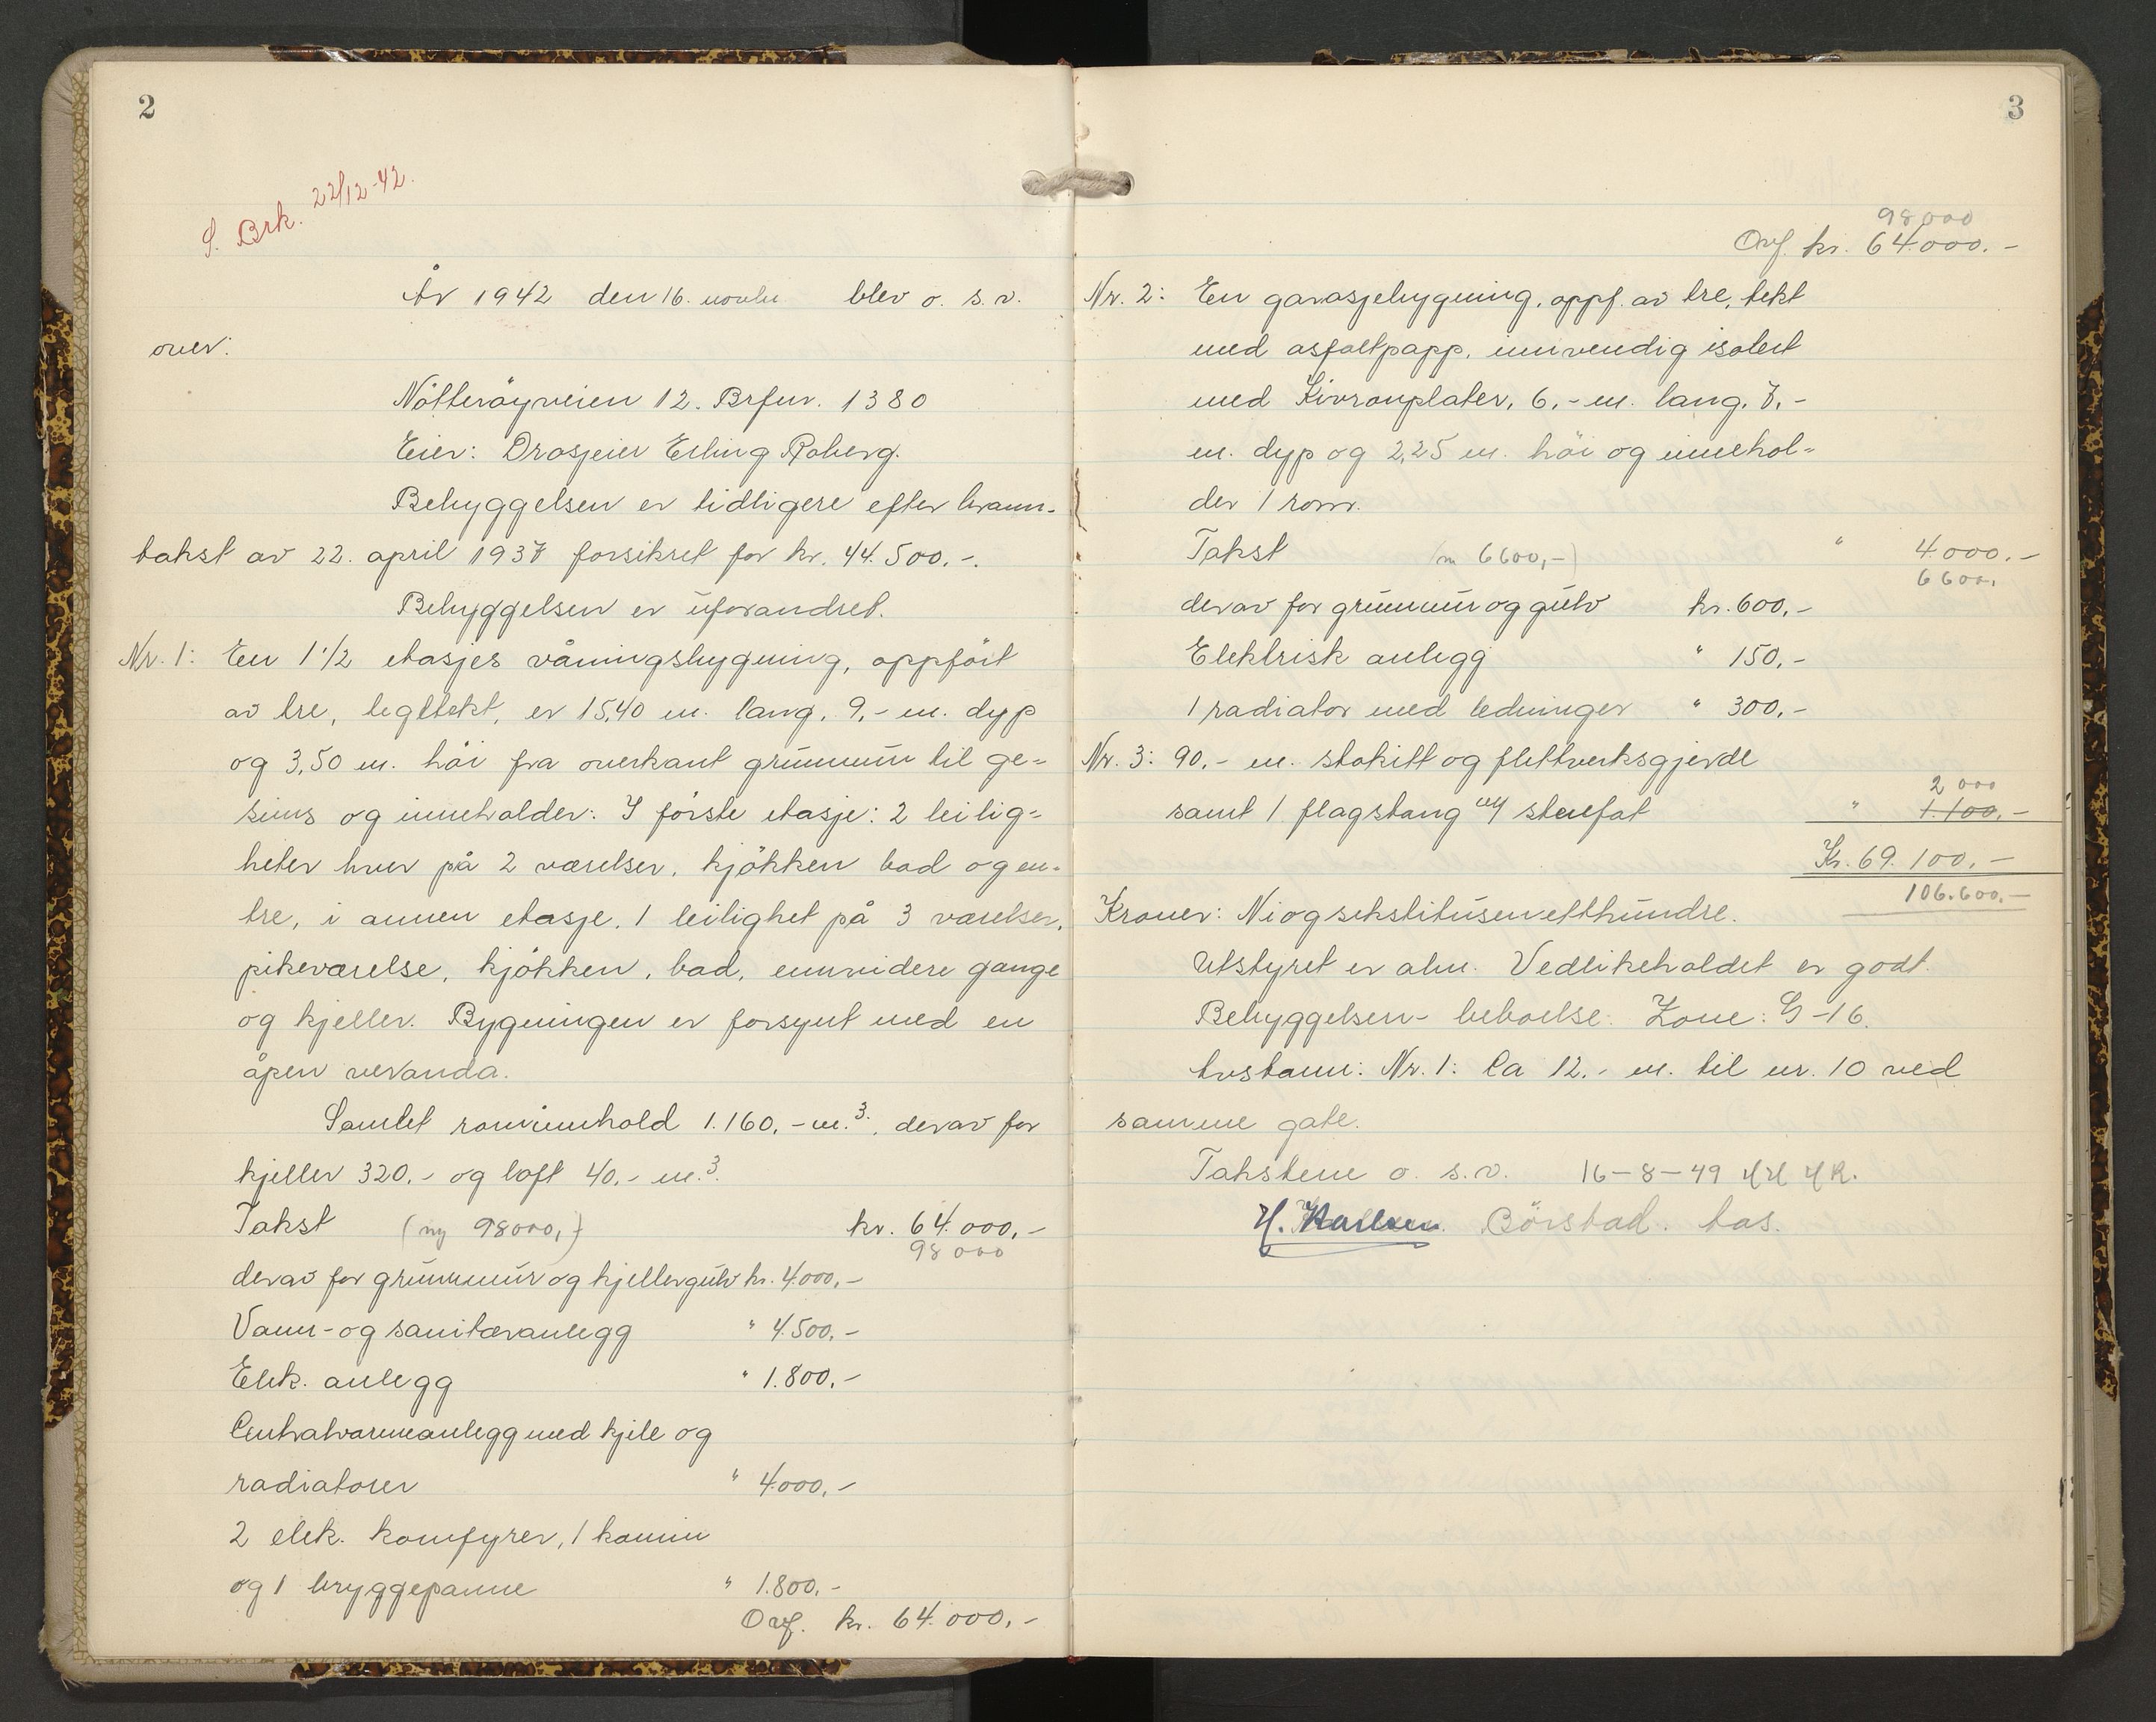 2
S. Brk. 22/12-42.
År 1942 den 16. novbr blev o. s. v.
over:
Nötteröyveien 12. Brfnr. 1380
Eier: Drosjeeier Erling Roberg.
Bebyggelsen er tidligere efter brann-
takst av 22. april 1937 forsikret for kr. 44.500.-.
Bebyggelsen er uforandret.
Nr. 1: En 1 1/2 etasjes våningsbygning, oppfört
av tre, tegltekt, er 15,40 m. lang, 9,- m. dyp
og 3,50 m. höi fra overkant grunnmur til ge-
sims og inneholder: I förste etasje: 2 leilig-
heter hver på 2 værelser, kjökken bad og en-
tre, i annen etasje, 1 leilighet på 3 værelser,
pikeværelse, kjökken, bad, ennvidere gange
og kjeller. Bygningen er forsynt med en
åpen veranda.
Samlet rominnhold 1.160,- m.³. derav for
kjeller 320.- og loft 40.- m.³.
Takst (ny 98000,-) kr. 64.000,-
98000
derav for grunnmur og kjellergulv kr. 4.000,-
Vann- og sanitæranlegg " 4.500,-
Elek. anlegg " 1.800,-
Centralvarmeanlegg med kjele og
radiatorer " 4.000,-
2 elek. komfyrer, 1 kamin
og 1 bryggepanne " 1.800.-
Ovf. kr. 64.000,-
3
98000
Ovf. kr. 64.000.-
Nr. 2: En garasjebygning, oppf. av tre, tekt
med asfaltpapp, innvendig isolert
med Kivronplater, 6,- m. lang, 7,-
m. dyp og 2,25 m. höi og innehol-
der 1 rom.
Takst (ny 6600,-) " 4.000.-
6600.
derav for grunnmur og gulv kr. 600,-
Elektrisk anlegg " 150,-
1 radiator med ledninger " 300,-
Nr. 3: 90,- m. stakitt og flettverksgjerde
2000
samt 1 flagstang m/ stenfot " 1.100.-
Kr. 69.100,-
106.600,-
Kroner: Niogsekstitusenetthundre.
Utstyret er alm. Vedlikeholdet er godt.
Bebyggelsen- beboelse. Zone: G-16.
Avstann: Nr. 1: Ca 12.- m. til nr. 10 ved
samme gate.
Takstene o. s. v. 16-8-49
H. Karlsen. Börstad. tas.